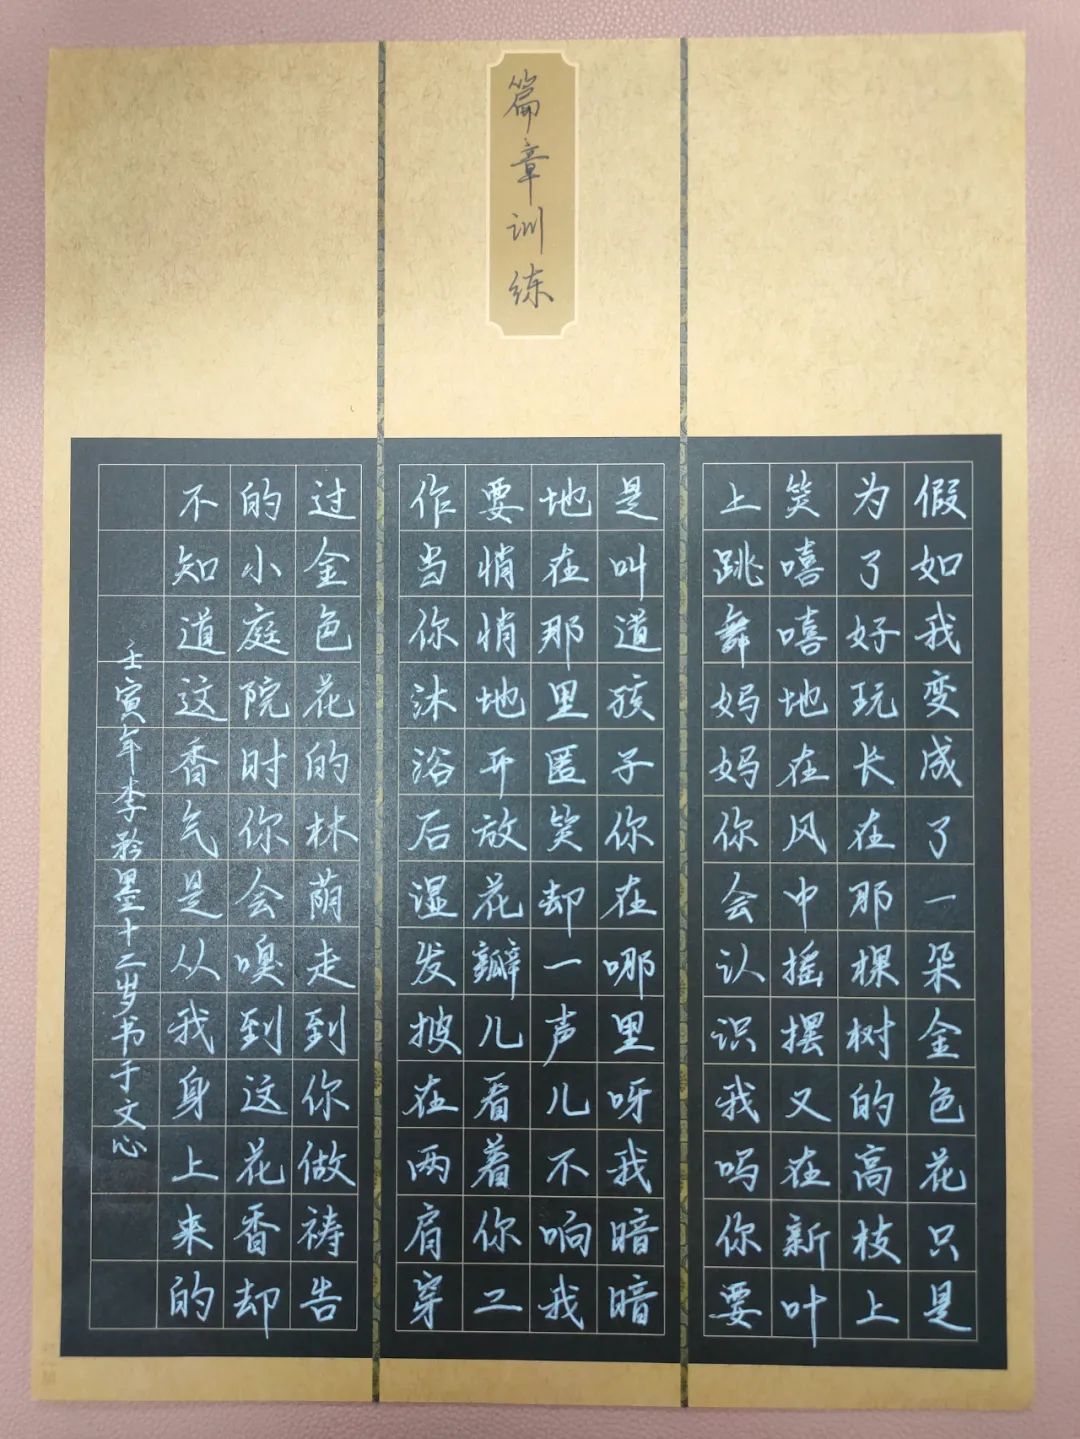 篇章训练
假如我变成了一朵金色花只是
为了好玩长在那棵树的高枝上
笑嘻嘻地在风中摇摆又在新叶
上跳舞妈妈你会认识我吗你要
是叫道孩子你在哪里呀我暗暗
地在那里匿笑却一声儿不响我
要悄悄地开放花瓣儿看着你工
作当你沐浴后湿发披在两肩穿
过金色花的林荫走到你做祷告
的小庭院时你会嗅到这花香却
不知道这香气是从我身上来的
壬寅年李墨十二岁书于文心